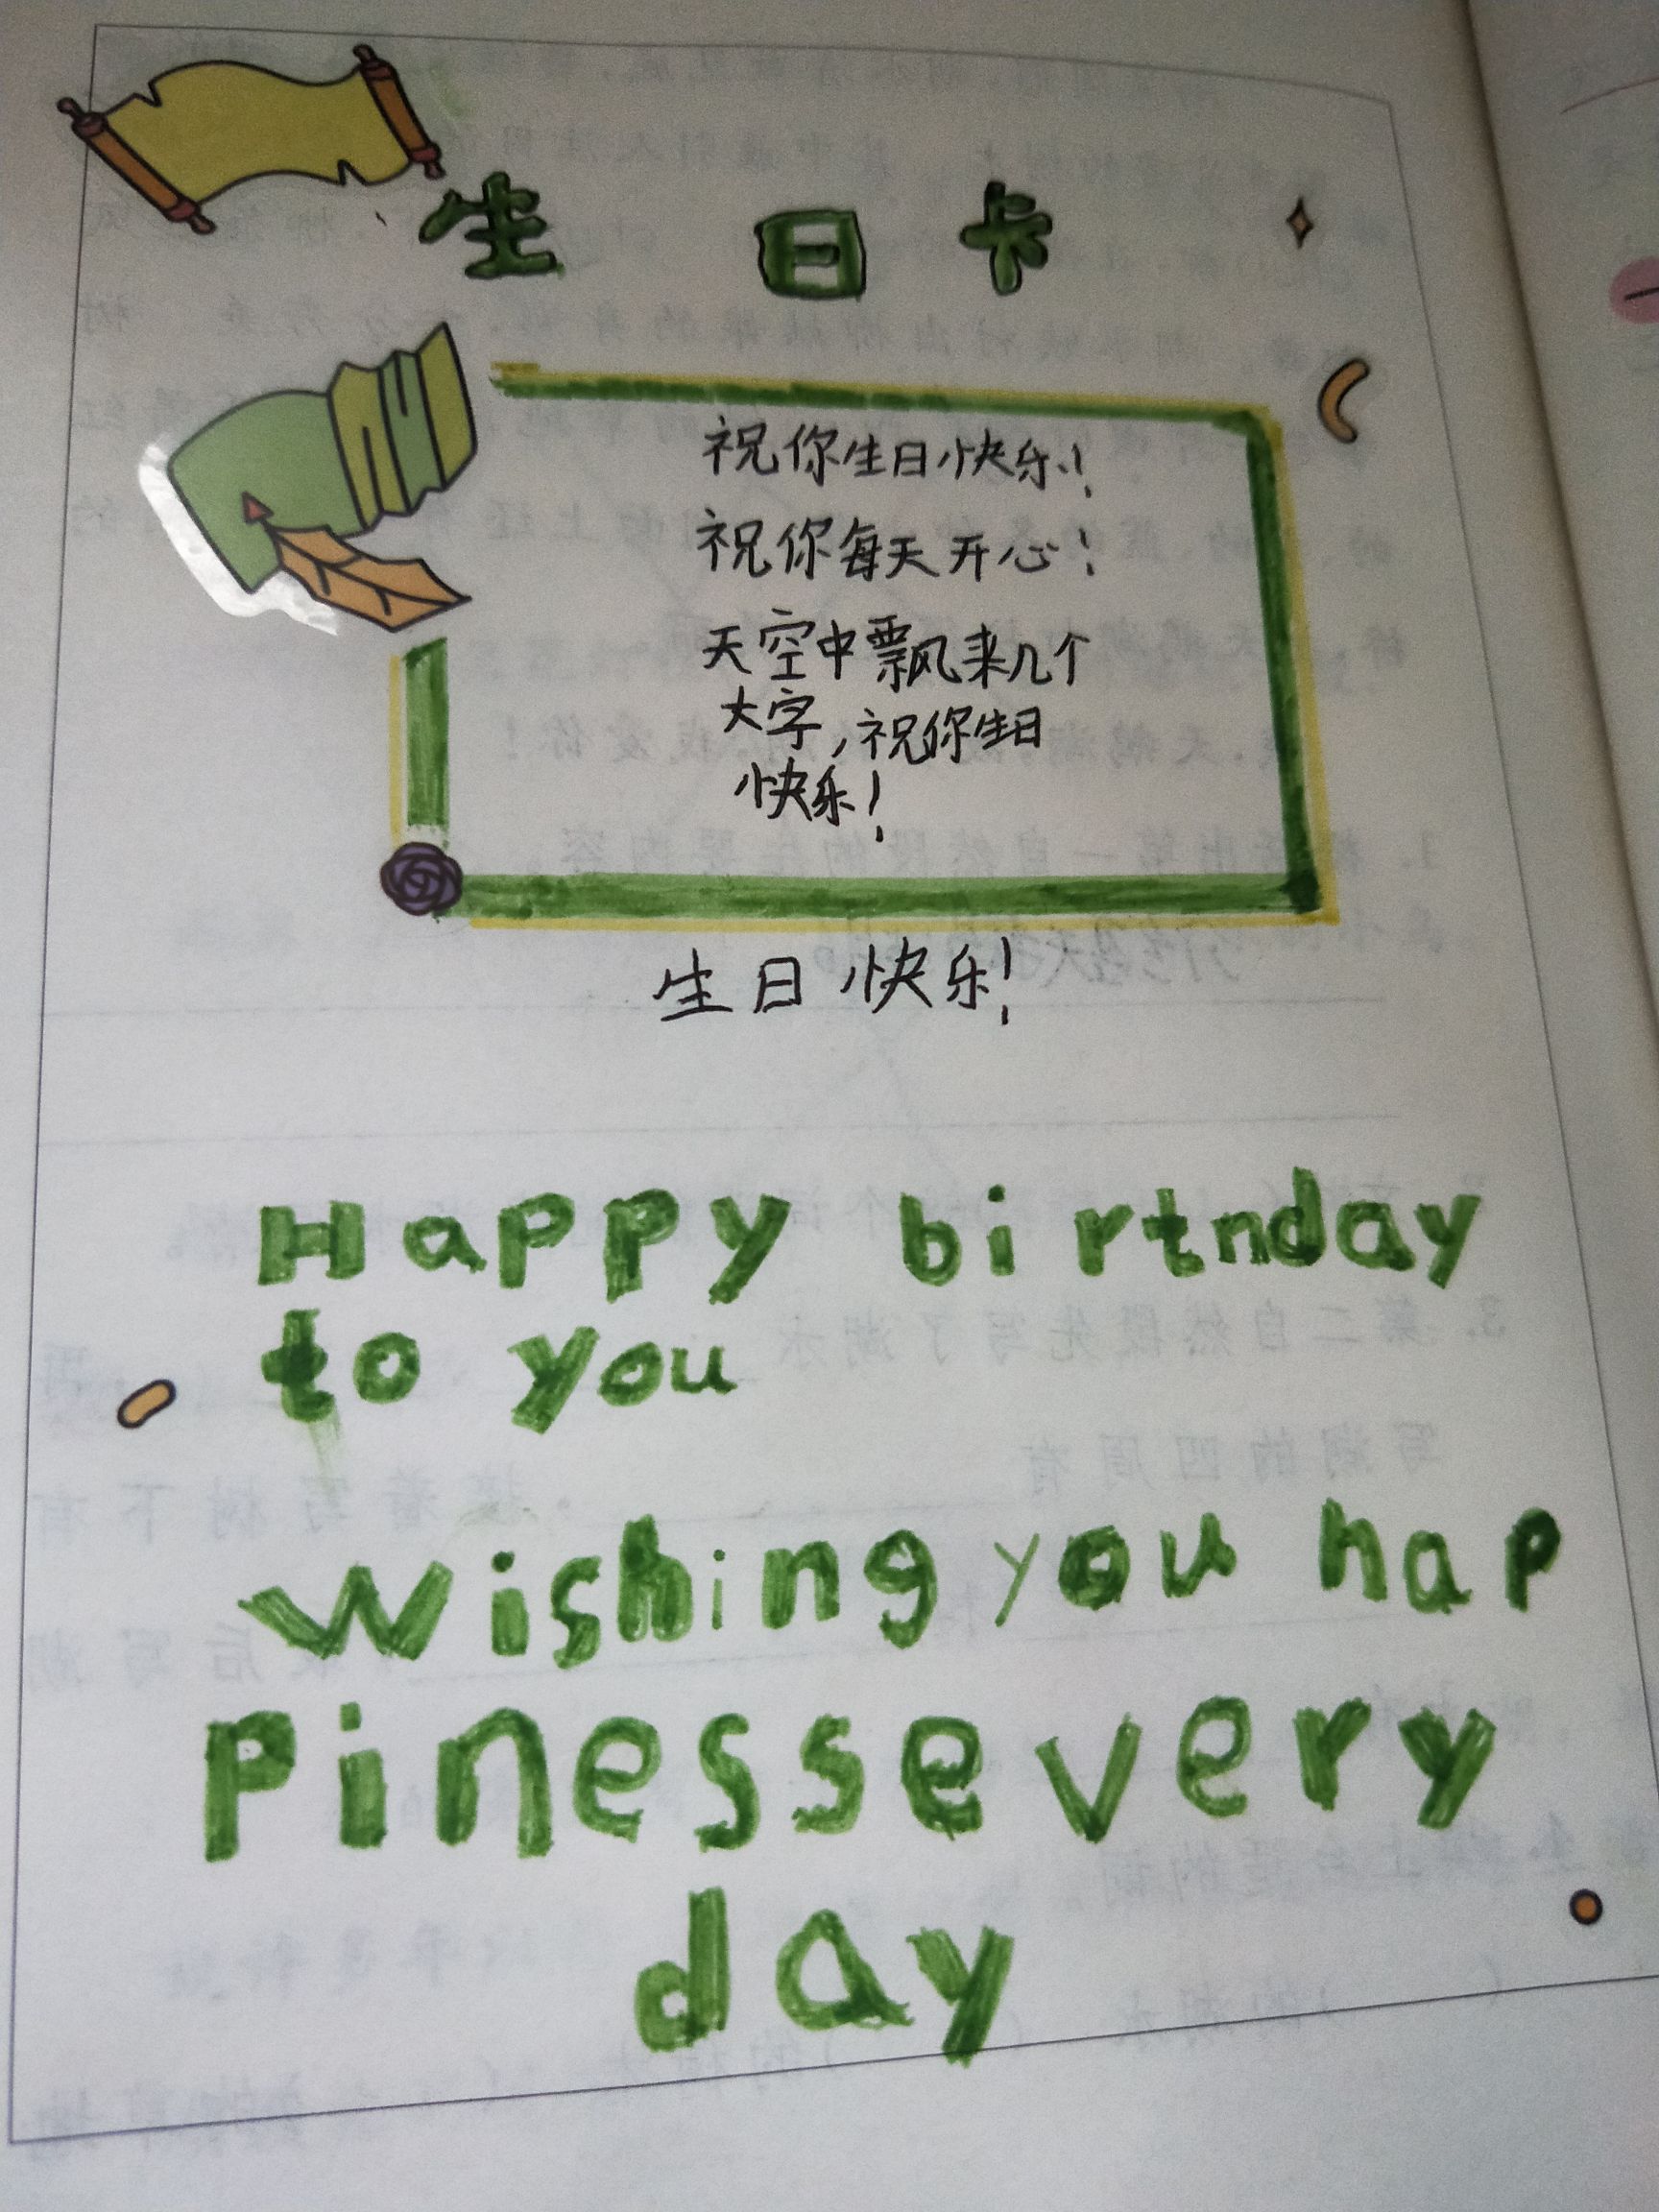 生日卡
祝你生日快乐!
祝你每天开心!
天空中飘来几个
大字,祝你生日
快乐!
生日快乐!
Happy birtnday
to you
wishing you hap
Pinessevery
day